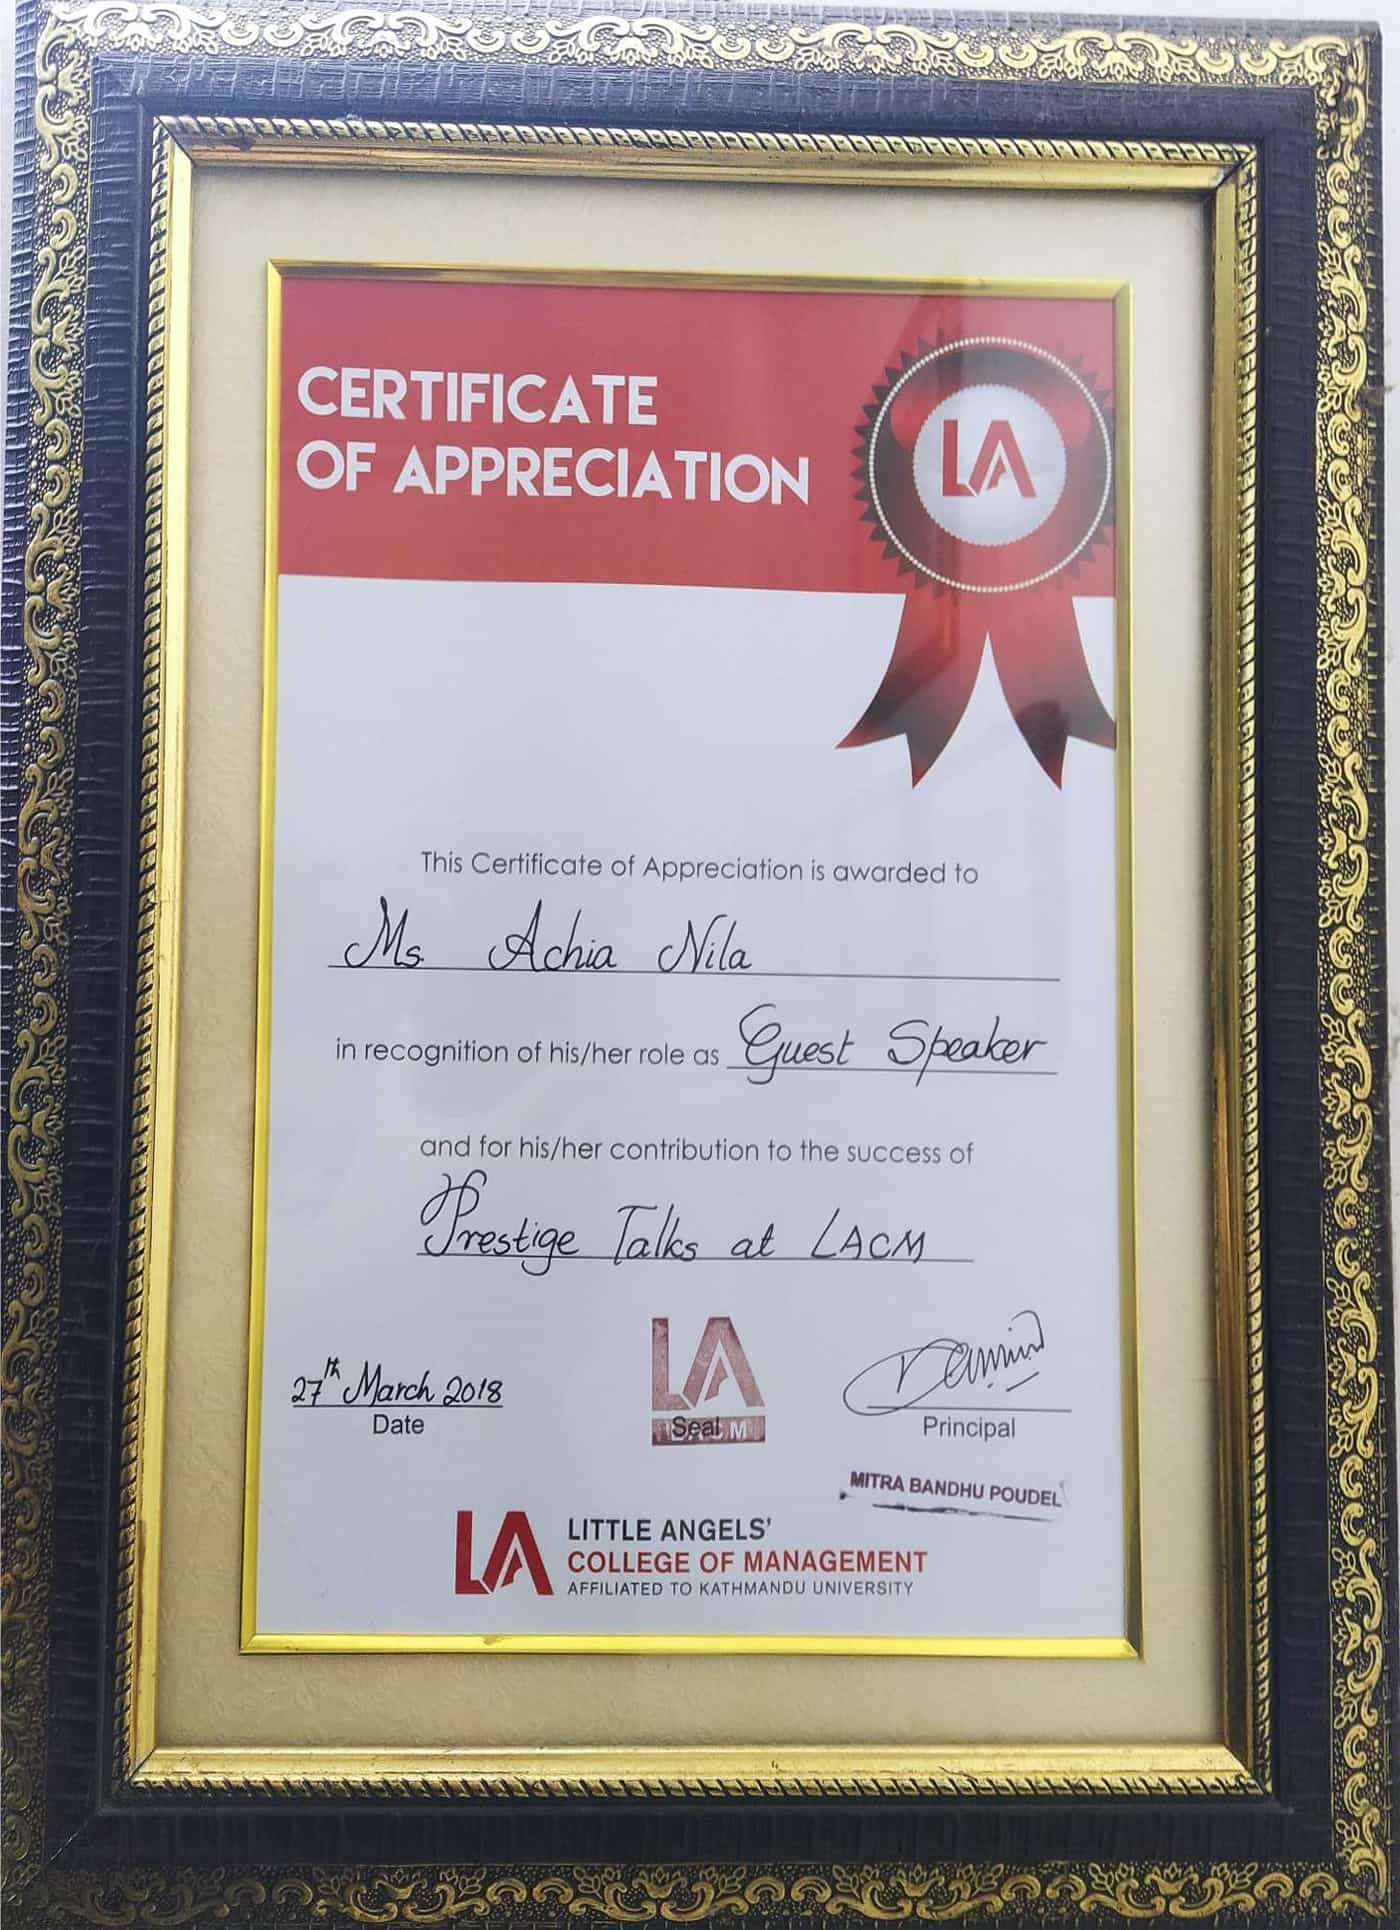 CERTIFICATE
OF APPRECIATION
LA
This Certificate of Appreciation is awarded to
Ms. Achia Nila
in recognition of his/her role as Guest Speaker
and for his/her contribution to the success of
Prestige Talks at LACM
27th March 2018
Date
LA
Seal
Principal
MITRA BANDHU POUDEL
LA
LITTLE ANGELS'
COLLEGE OF MANAGEMENT
AFFILIATED TO KATHMANDU UNIVERSITY